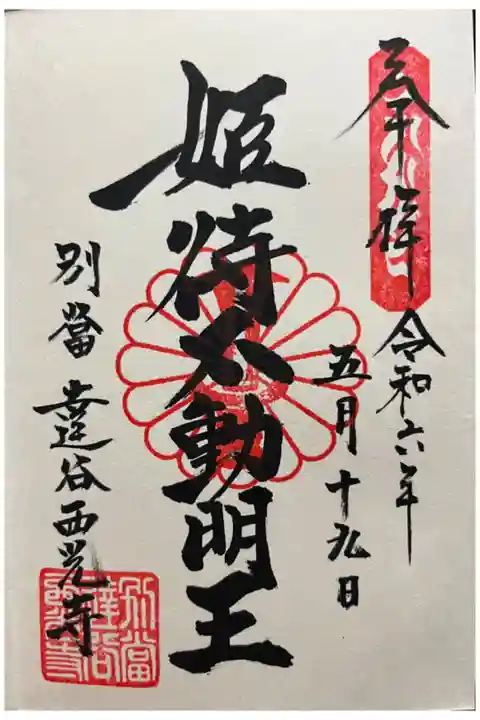 奉拝
令和六年
五月十九日
姫待不動明王
別當 達谷西光寺
別當
達谷
西光寺